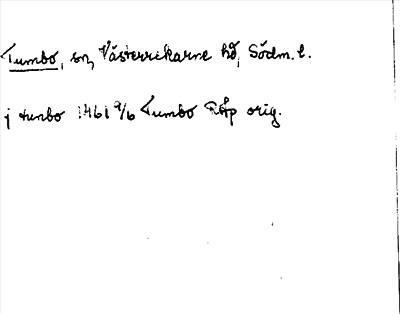 Tumbo, sn, Västerrekarne hd, Södm. l.
j tunbo 1461 9/6 Tumbo RAp orig.